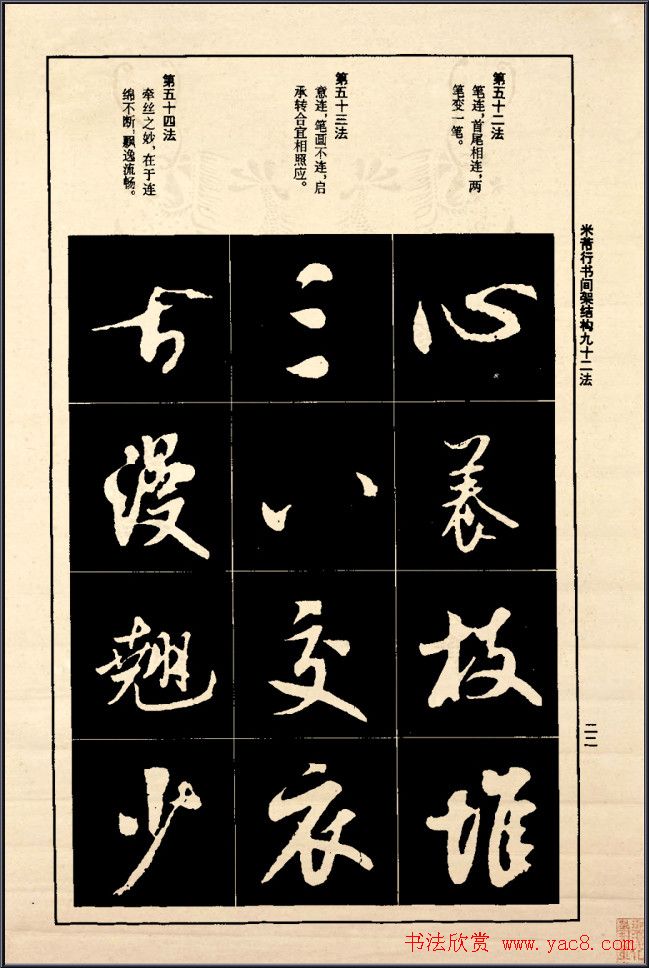 米芾行书间架结构九十二法
第五十二法
笔连，首尾相连，两
笔变一笔。
第五十三法
意连，笔画不连，启
承转合宜相照应。
第五十四法
牵丝之妙，在于连
绵不断，飘逸流畅。
心
养
枝
堆
三
八
交
衣
古
漫
翘
少
二二
书法欣赏 www.yac8.com